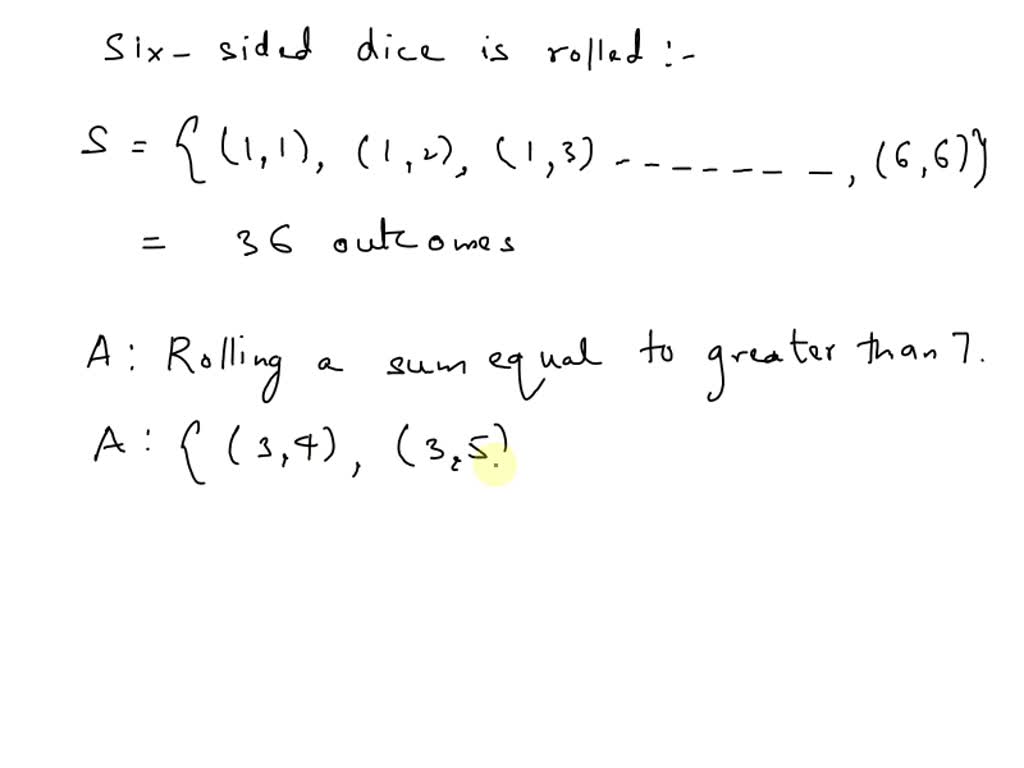 Six- sided dice is rolled :-
S = { (1,1), (1,2), (1,3) -------, (6,6)}
= 36 outcomes
A : Rolling a sum equal to greater than 7.
A : { (3,4), (3,5)